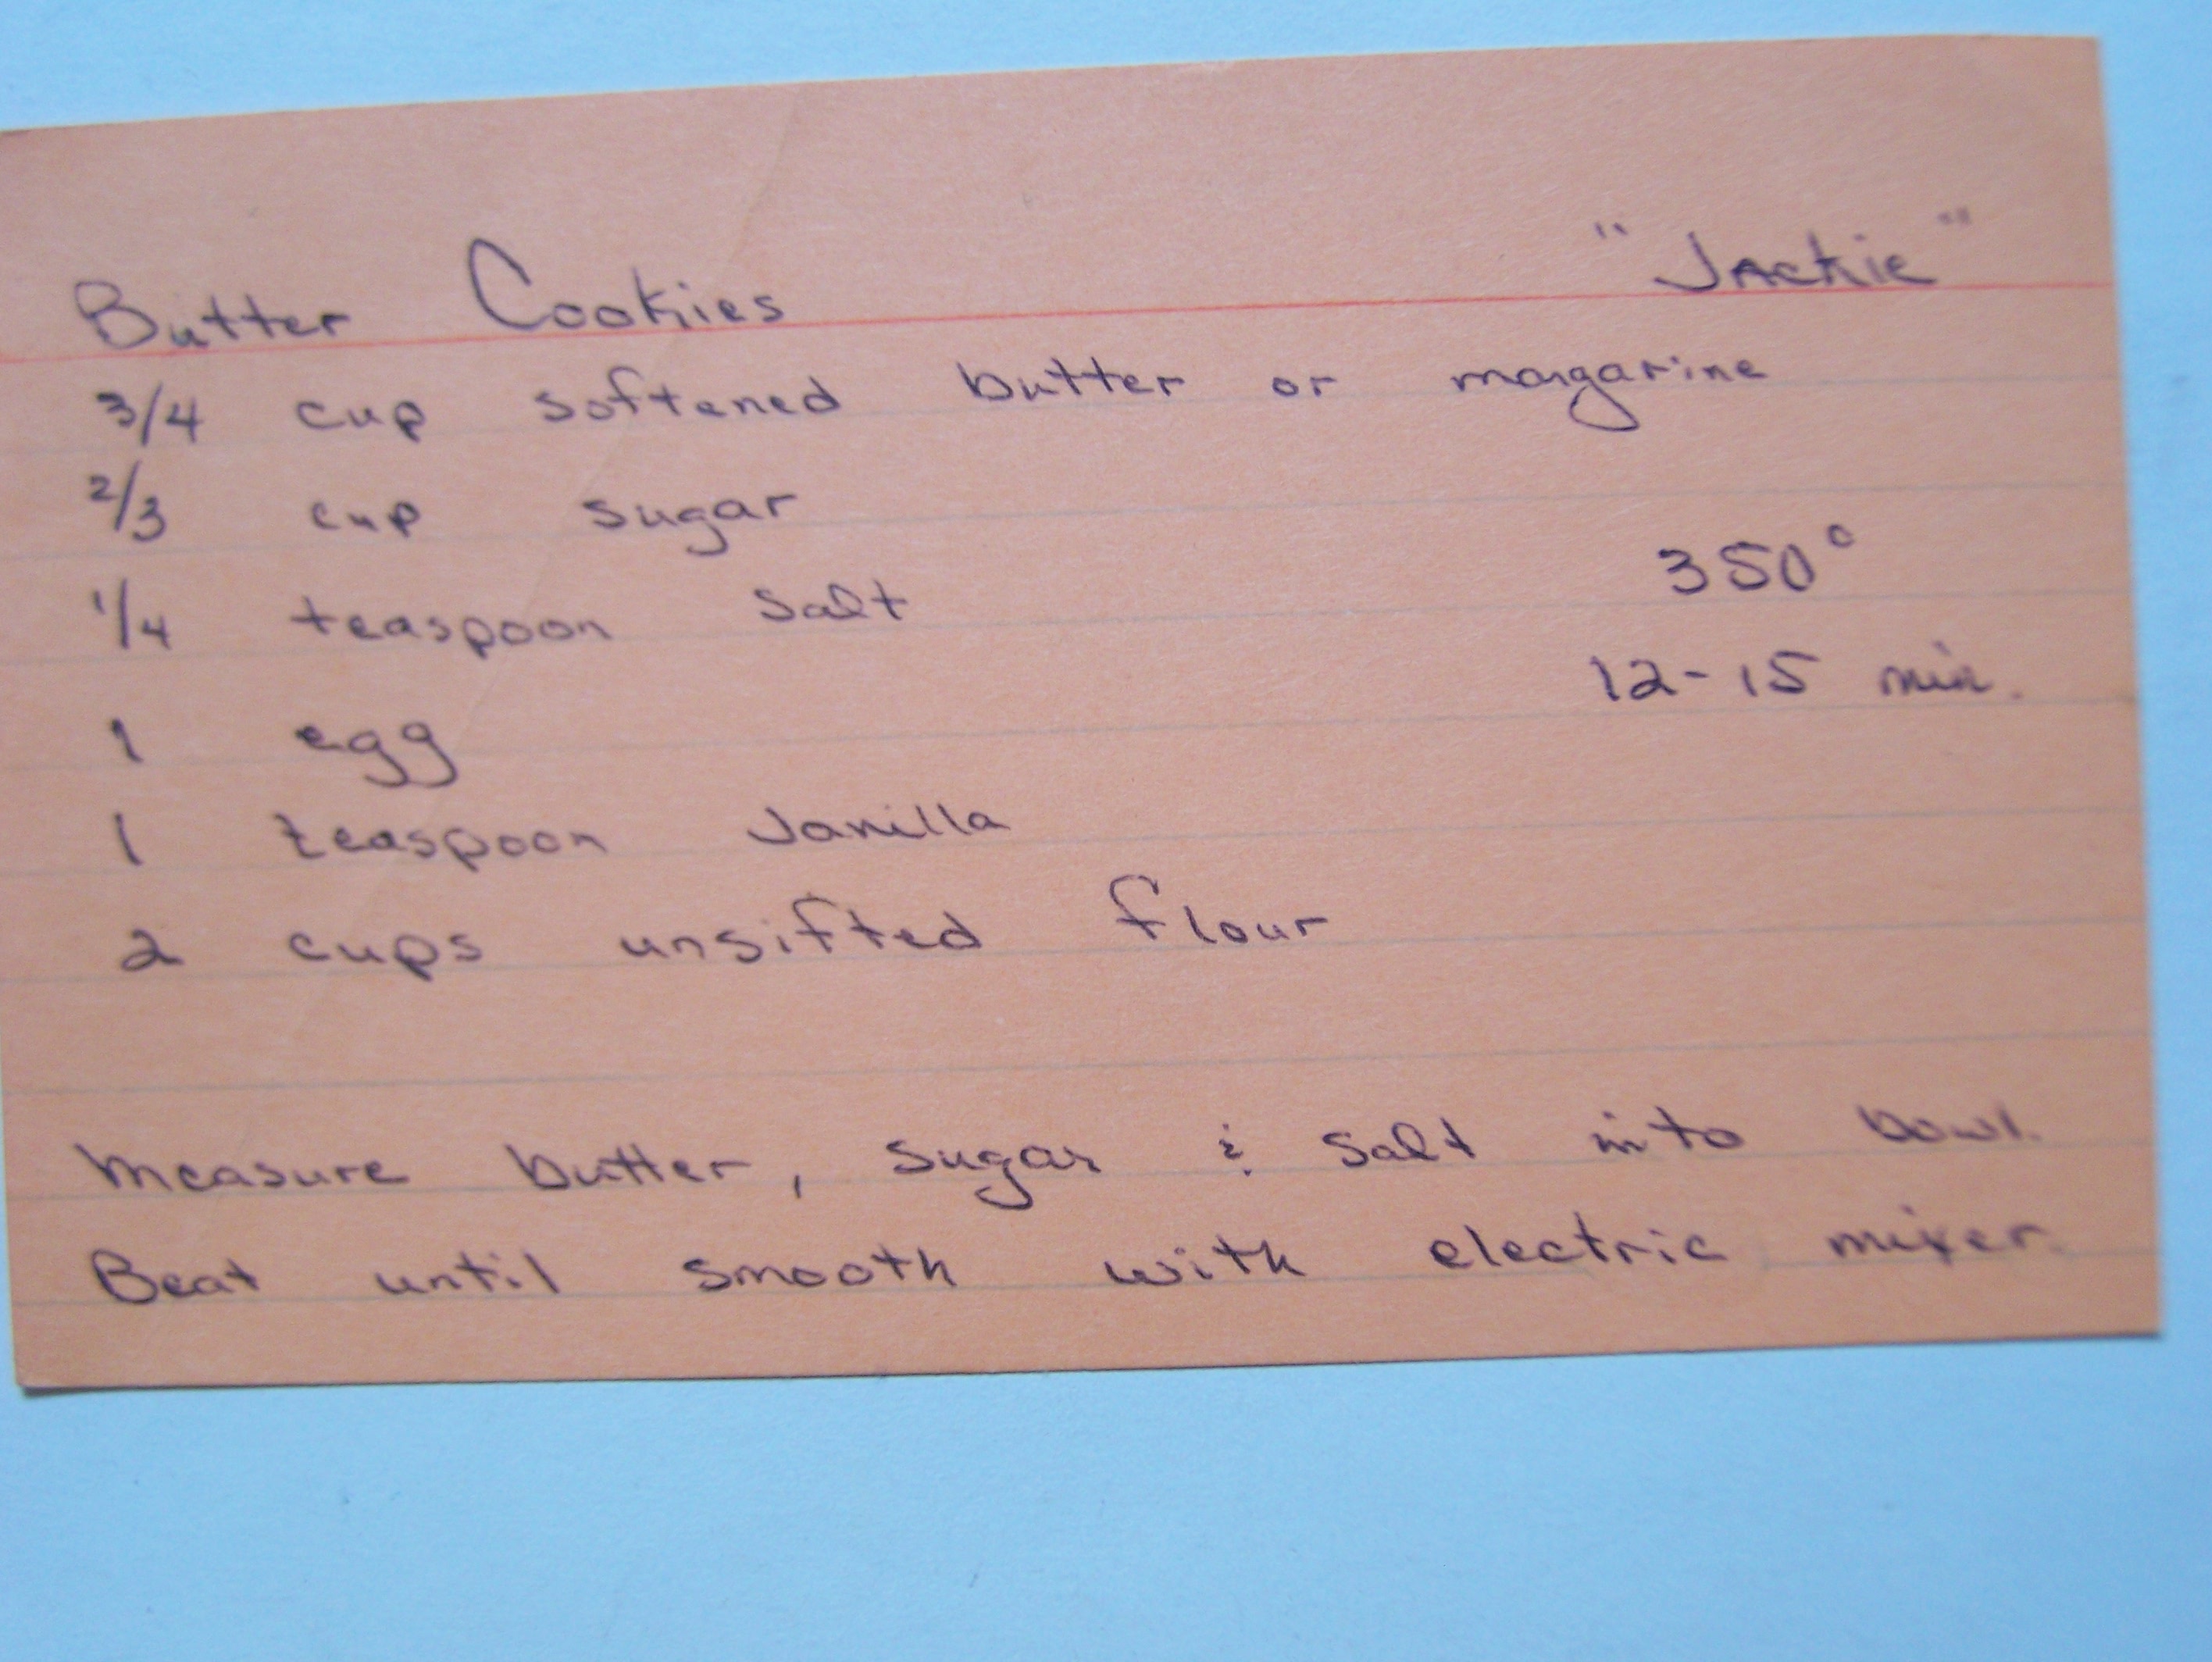 Butter Cookies "Jackie"
3/4 cup softened butter or margarine
2/3 cup sugar
350°
1/4 teaspoon salt
12-15 min.
1 egg
1 teaspoon Vanilla
2 cups unsifted flour
Measure butter, sugar & salt into bowl.
Beat until smooth with electric mixer.